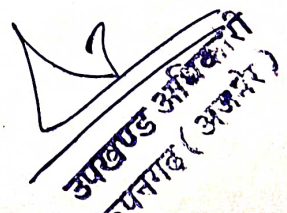 उपखण्ड अधिकारी
(अजमेर)